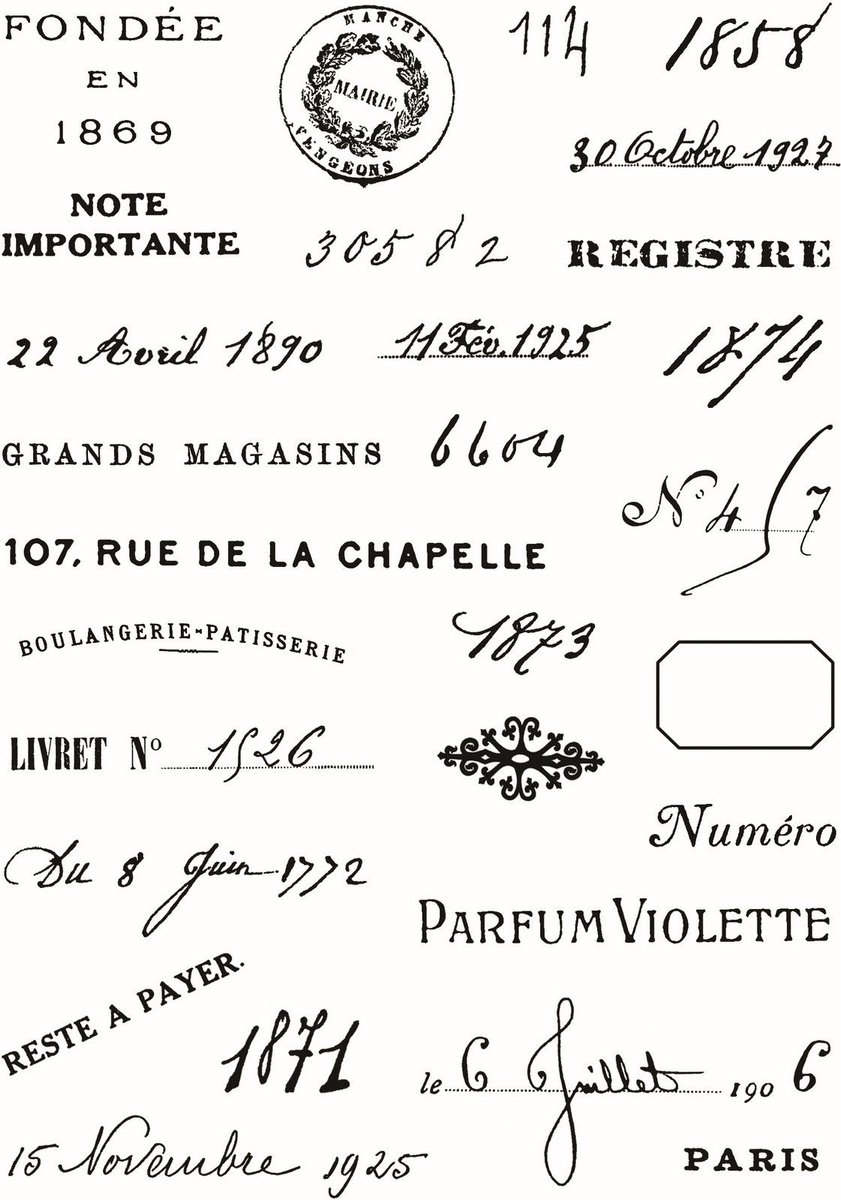 FONDÉE
EN
1869
MANCHE
MAIRIE
VENGEONS
114
1858
30 Octobre 1927
NOTE
IMPORTANTE
30582
REGISTRE
22 Avril 1890
11 Fév. 1925
1874
GRANDS MAGASINS
6604
No 4 7
107, RUE DE LA CHAPELLE
BOULANGERIE-PATISSERIE
1873
LIVRET No 1526
Numéro
Du 8 Juin 1772
PARFUM VIOLETTE
RESTE A PAYER.
1871
le 6 Juillet 1906
15 Novembre 1925
PARIS